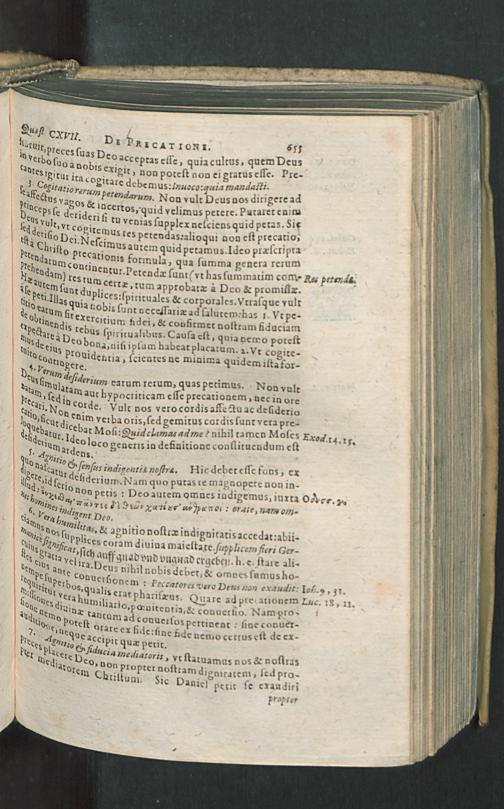 Quæst CXVII. DE PRECATIONE. 655
statuit, preces suas Deo acceptas esse, quia cultus, quem Deus
in verbo suo a nobis exigit, non potest non ei gratus esse. Pre-
cantes igitur ita cogitare debemus: Inuoco: quia mandasti.
3 Cogitatio rerum petendarum. Non vult Deus nos dirigere ad
se affectus vagos & incertos, quid velimus petere. Putaret enim
princeps se derideri si tu venias supplex nesciens quid petas. Sic
Deus vult, vt cogitemus res petendas: alioqui non est precatio,
sed derisio Dei. Nescimus autem quid petamus. Ideo præscripta
est à Christo precationis formula, qua summa genera rerum
petendarum continentur. Petendæ sunt (vt has summatim com- Res petendæ.
prehendam) res tum certæ, tum approbatæ à Deo & promissæ.
Hæ autem sunt duplices: spirituales & corporales. Vtrasque vult
à se peti. Illas quia nobis sunt necessariæ ad salutem: has 1. Vt pe-
titio earum sit exercitium fidei, & confirmet nostram fiduciam
de obtinendis rebus spiritualibus. Causa est, quia nemo potest
expectare à Deo bona, nisi ipsum habeat placatum. 2. Vt cogite-
mus de eius prouidentia, scientes ne minima quidem ista for-
tuito contingere.
4. Verum desiderium earum rerum, quas petimus. Non vult
Deus simulatam aut hypocriticam esse precationem, nec in ore
natam, sed in corde. Vult nos vero cordis affectu ac desiderio
precari. Non enim verba oris, sed gemitus cordis sunt vera pre-
catio, sicut dicebat Mosi: Quid clamas ad me? nihil tamen Moses Exod. 14. 15.
loquebatur. Ideo loco generis in definitione constituendum est
desiderium ardens.
5. Agnitio & sensus indigentiæ nostræ. Hic debet esse fons, ex
quo nascatur desiderium. Nam quo putas te magnopere non in-
digere, id serio non petis: Deo autem omnes indigemus, iuxta
illud: orate, nam om-
nes homines indigent Deo.
6. Vera humilitas, & agnitio nostræ indignitatis accedat: abii-
ciamus nos supplices coram diuina maiestate. supplicem fieri Ger-
manicè significat, sich auff gnad vnd vngnad ergeben. h. e. stare ali-
cuius gratia vel ira. Deus nihil nobis debet, & omnes sumus ho-
stes eius ante conuersionem: Peccatores vero Deus non exaudit: Ioh. 9, 31.
nempe superbos, qualis erat pharisæus. Quare ad precationem Luc. 18, 11.
requiritur vera humiliatio, pœnitentia, & conuersio. Nam pro-
missiones diuinæ tantum ad conuersos pertinent: sine conuer-
sione nemo potest orare ex fide: sine fide nemo certus est de ex-
auditione, neque accipit quæ petit.
7. Agnitio & fiducia mediatoris, vt statuamus nos & nostras
preces placere Deo, non propter nostram dignitatem, sed pro-
pter mediatorem Christum. Sic Daniel petit se exaudiri
propter